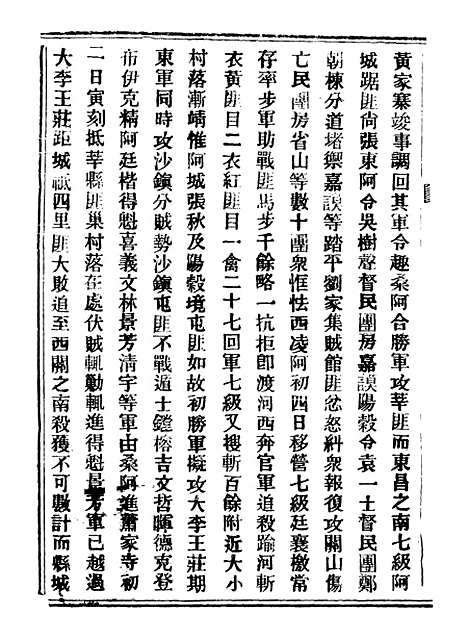 黃家寨竣事調回其軍令趣桑阿合勝軍攻莘匪而東昌之南七級阿
城踞匪尙張東阿令吳樹聲督民團房嘉謨陽穀令袁一士督民團鄭
朝棟分道堵禦嘉謨等踏平劉家集賊館匪忿怒糾衆報復攻關山傷
亡民團房省山等數十團衆恇怯西凌阿初四日移營七級廷襄檄當
存率步軍助戰匪馬步千餘略一抗拒卽渡河西奔官軍追殺踰河斬
衣黃匪目二衣紅匪目一禽二十七回軍七級又搜斬百餘附近大小
村落漸靖惟阿城張秋及陽穀境屯匪如故初勝軍擬攻大李王莊期
東軍同時攻沙鎭分賊勢沙鎭屯匪不戰遁士鏜榕吉文哲暉德克登
布伊克精阿廷楷得魁喜義文林景芳淸宇等軍由桑阿進蕭家寺初
二日寅刻抵莘縣匪巢村落在處伏賊輒勦輒進得魁景芳軍已越過
大李王莊距城祗四里匪大敗追至西關之南殺獲不可數計而縣城